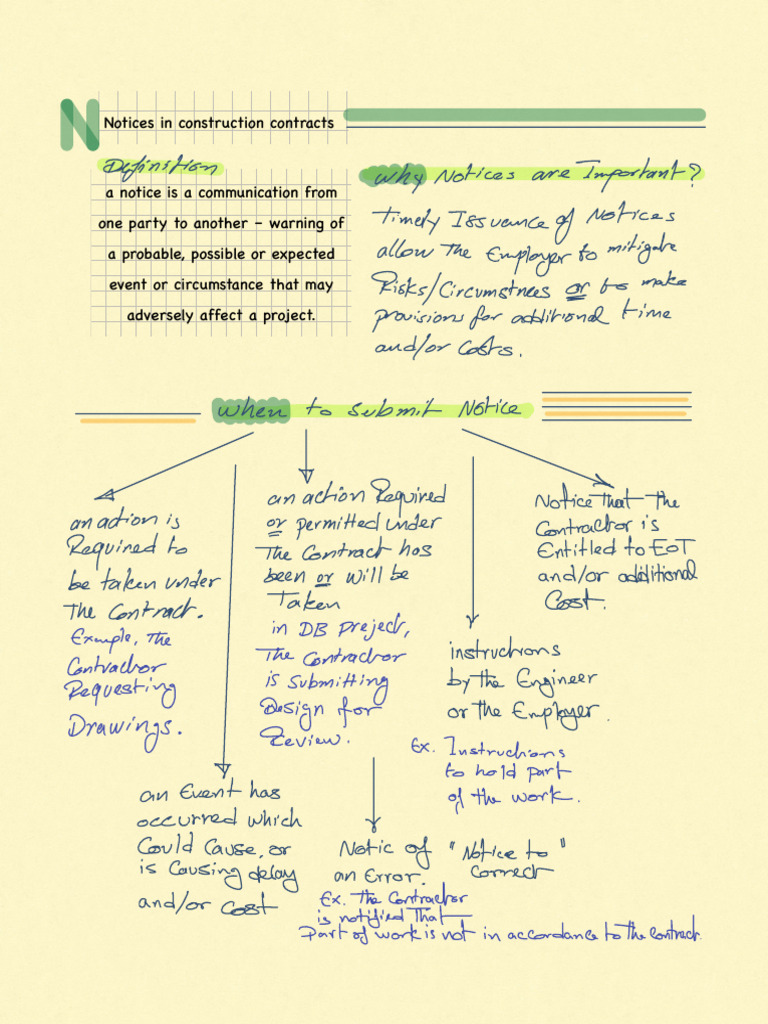 N
Notices in construction contracts
Definition
a notice is a communication from
one party to another – warning of
a probable, possible or expected
event or circumstance that may
adversely affect a project.
Why Notices are Important?
Timely Issuence of Notices
allow The Employer to mitigate
Risks/Circumstnces or to make
provisions for additional time
and/or Costs.
When to Submit Notice
an action is
Required to
be taken under
The Contract.
Example, The
Contractor
Requesting
Drawings.
an Event has
occurred which
Could Cause, or
is Causing delay
and/or Cost
an action Required
or permitted under
The Contract has
been or will be
Taken
in DB Preject,
The Contractor
is Submitting
Design for
Review.
Notic of
an Error.
"Notice to"
Correct
Ex. The Contractor
is notified That
Part of work is not in accordance to the contract.
instructions
by the Engineer
or the Employer.
Ex. Instructions
to hold part
of the work.
Notice That The
Contractor is
Entitled to EoT
and/or additional
Cost.